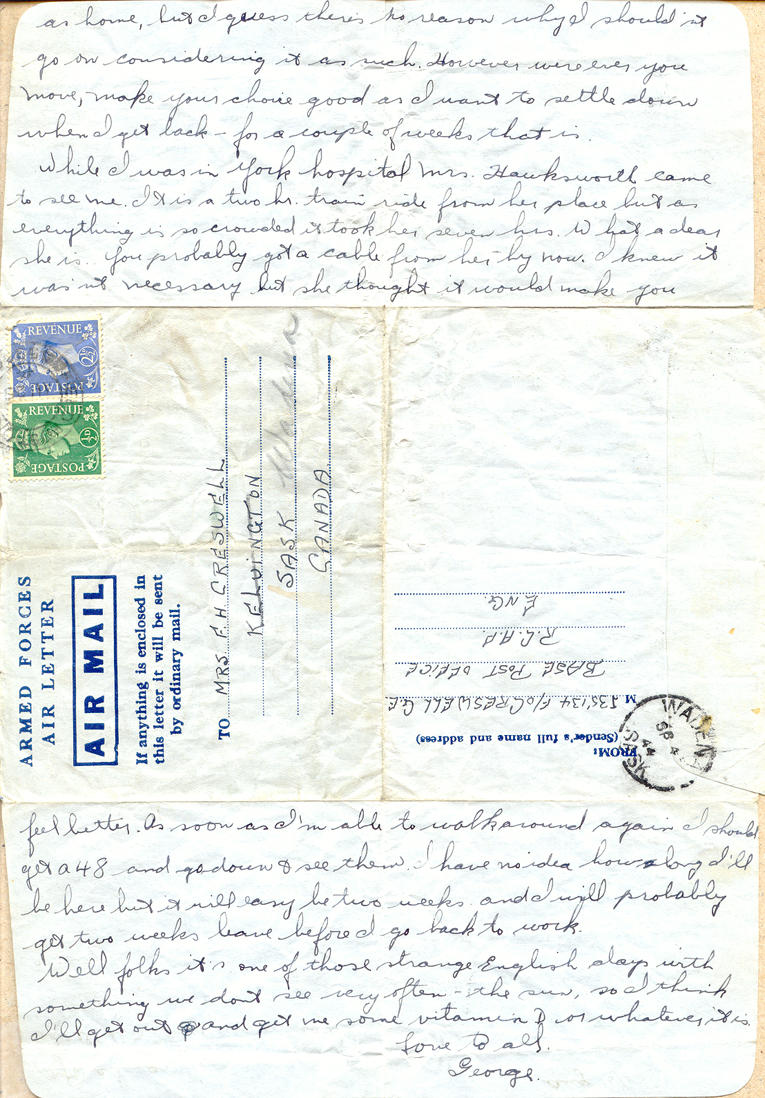 as home, but I guess there's no reason why I should'nt
go on considering it as such. However were ever you
move, make your choice good as I want to settle down
when I get back – for a couple of weeks that is.
While I was in York hospital Mrs. Hawksworth came
to see me. It is a two hr. train ride from her place but as
everything is so crowded it took her seven hrs. What a dear
she is. You probably got a cable from her by now. I knew it
was'nt necessary but she thought it would make you
REVENUE
2½D
POSTAGE
REVENUE
½D
POSTAGE
ARMED FORCES
AIR LETTER
AIR MAIL
If anything is enclosed in
this letter it will be sent
by ordinary mail.
TO MRS F H CRESWELL
KELVINGTON
SASK Wadena
CANADA
FROM:
(Sender's full name and address)
M J35134 F/O CRESWELL G.E
BASE POST OFFICE
R.C.A.F.
ENG.
WADEN
SP 4
44
SASK
feel better. As soon as I'm able to walk around again I should
get a 48 and go down & see them. I have no idea how long I'll
be here but it will easy be two weeks and I will probably
get two weeks leave before I go back to work.
Well folks it's one of those strange English days with
something we don't see very often – the sun, so I think
I'll get out and get me some vitamin D or whatever it is.
Love to all.
George.